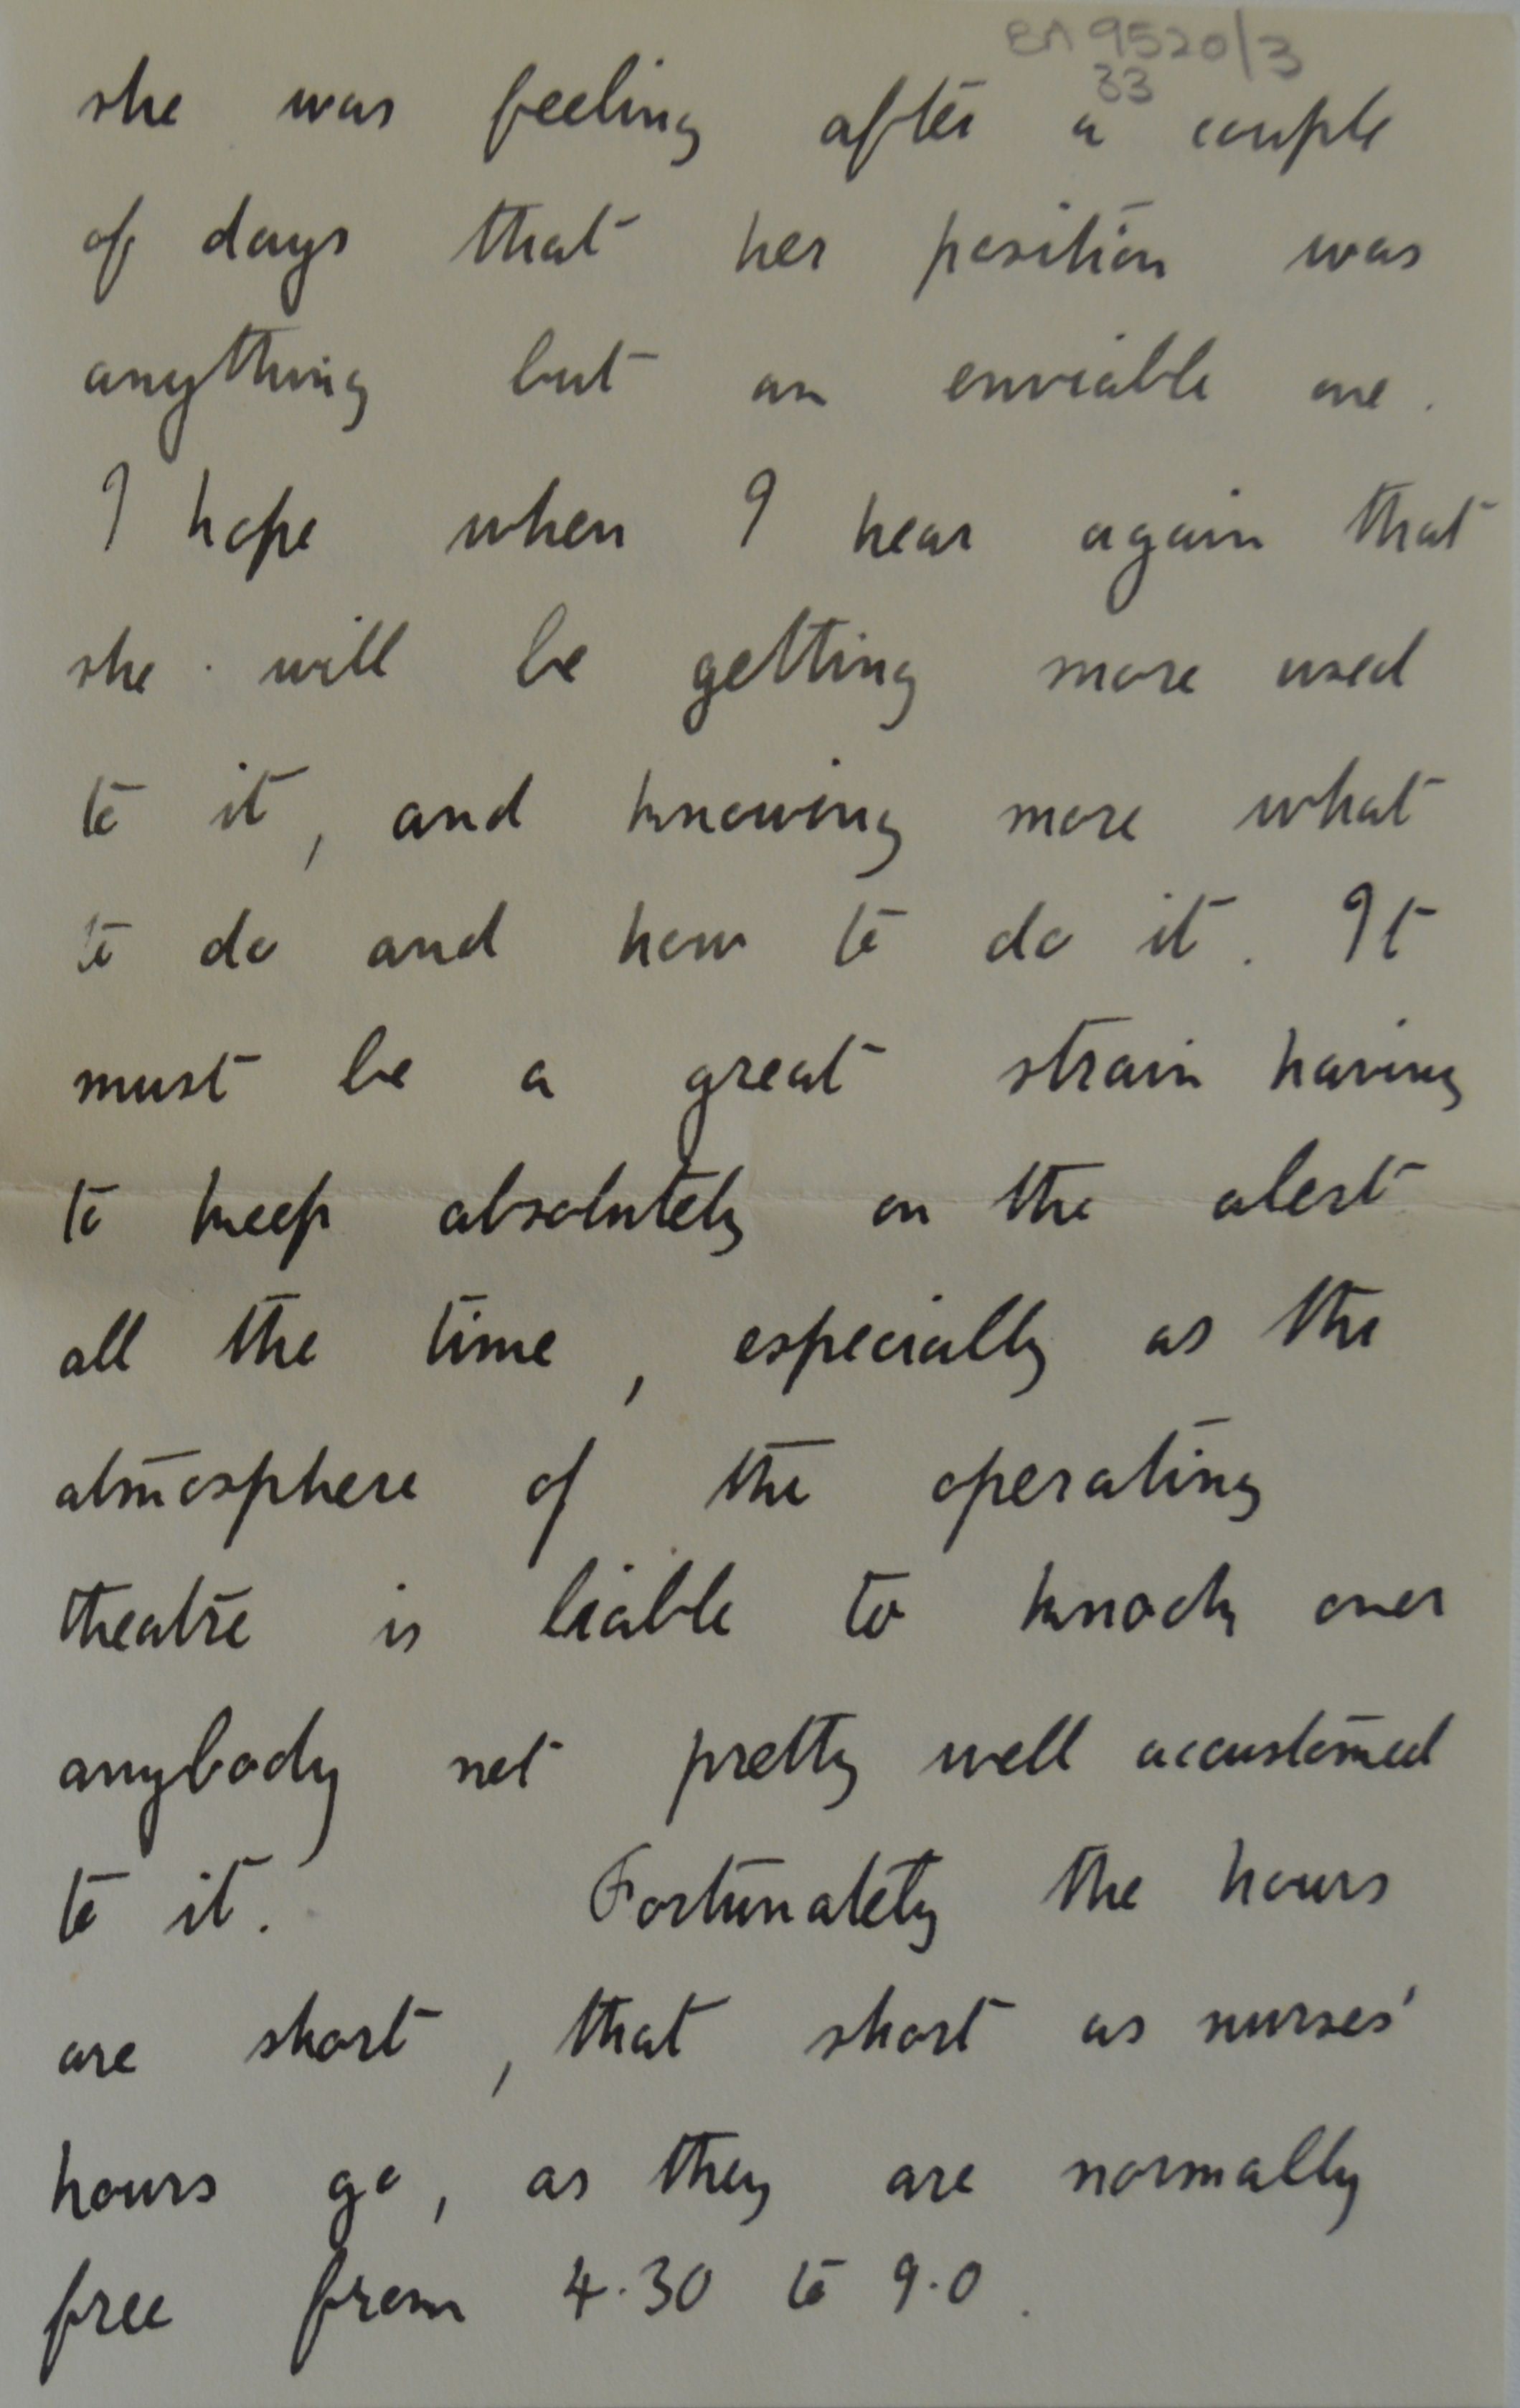 BA 9520/3
33
she was feeling after a couple
of days that her position was
anything but an enviable one.
I hope when I hear again that
she will be getting more used
to it, and knowing more what
to do and how to do it. It
must be a great strain having
to keep absolutely on the alert
all the time, especially as the
atmosphere of the operating
theatre is liable to knock over
anybody not pretty well accustomed
to it. Fortunately the hours
are short, that short as nurses'
hours go, as they are normally
free from 4.30 to 9.0.